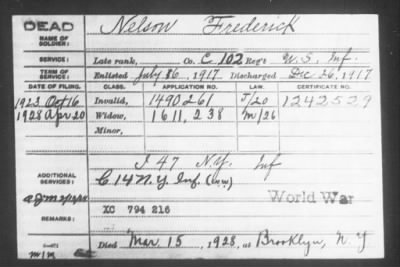 DEAD
NAME OF SOLDIER: Nelson Frederick
SERVICE: Late rank, Co. C 102 Reg't U.S. Inf.
TERM OF SERVICE: Enlisted July 26, 1917. Discharged Dec 26, 1917
DATE OF FILING. CLASS. APPLICATION NO. LAW. CERTIFICATE NO.
1923 Oct 16 Invalid, 1490261 J/20 1242529
1928 Apr 20 Widow, 1611,238 M/26
Minor,
I 47 N.Y. Inf
ADDITIONAL SERVICES: C 14 N.Y. Inf. (W.W.)
World War
REMARKS: XC 794 216
Died Mar. 15, 1928, at Brooklyn, N.Y